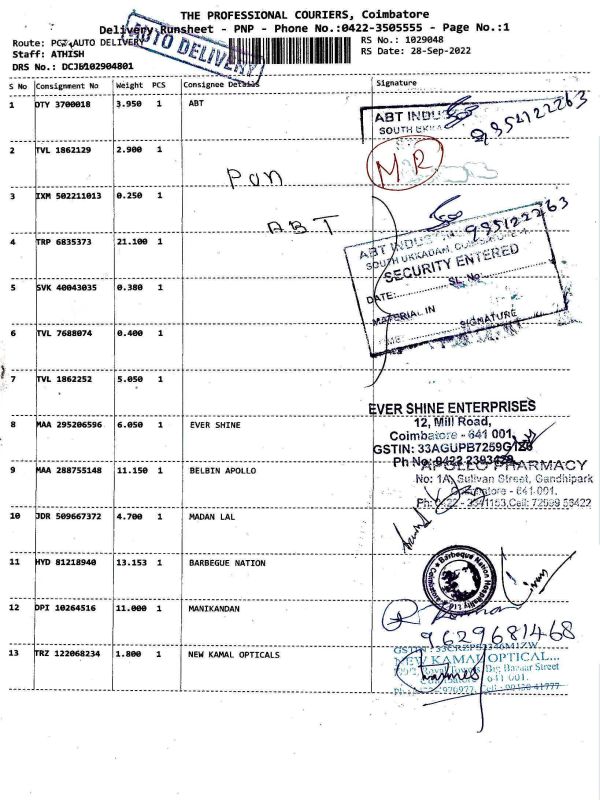 THE PROFESSIONAL COURIERS, Coimbatore
Delivery Runsheet - PNP - Phone No.:0422-3505555 - Page No.:1
AUTO DELIVERY
Route: PGZ AUTO DELIVERY
RS No.: 1029048
Staff: ATHISH
RS Date: 28-Sep-2022
DRS No.: DCJE102904801
S No Consignment No Weight PCS Consignee Details Signature
1 DTY 3700018 3.950 1 ABT
ABT INDUS
SOUTH UKKA
2 TVL 1862129 2.900 1
MR
Pon
3 IXM 502211013 0.250 1
ABT
4 TRP 6835373 21.100 1
ABT INDUS
SOUTH UKKADAM,
SECURITY ENTERED
DATE: SL No:
MATERIAL IN
SIGNATURE
5 SVK 40043035 0.380 1
6 TVL 7688074 0.400 1
7 TVL 1862252 5.050 1
EVER SHINE ENTERPRISES
12, Mill Road,
Coimbatore - 641 001.
GSTIN: 33AGUPB7259G1Z6
Ph No:
8 MAA 295206596 6.050 1 EVER SHINE
APOLLO PHARMACY
No: 1A, Sulivan Street, Gandhipark
Coimbatore - 641 001.
9 MAA 288755148 11.150 1 BELBIN APOLLO
10 JDR 509667372 4.700 1 MADAN LAL
11 HYD 81218940 13.153 1 BARBEGUE NATION
Barbeque Nation Hospitality Ltd
12 DPI 10264516 11.000 1 MANIKANDAN
9629681468
13 TRZ 122068234 1.800 1 NEW KAMAL OPTICALS
NEW KAMAL OPTICAL...
Big Bazaar Street